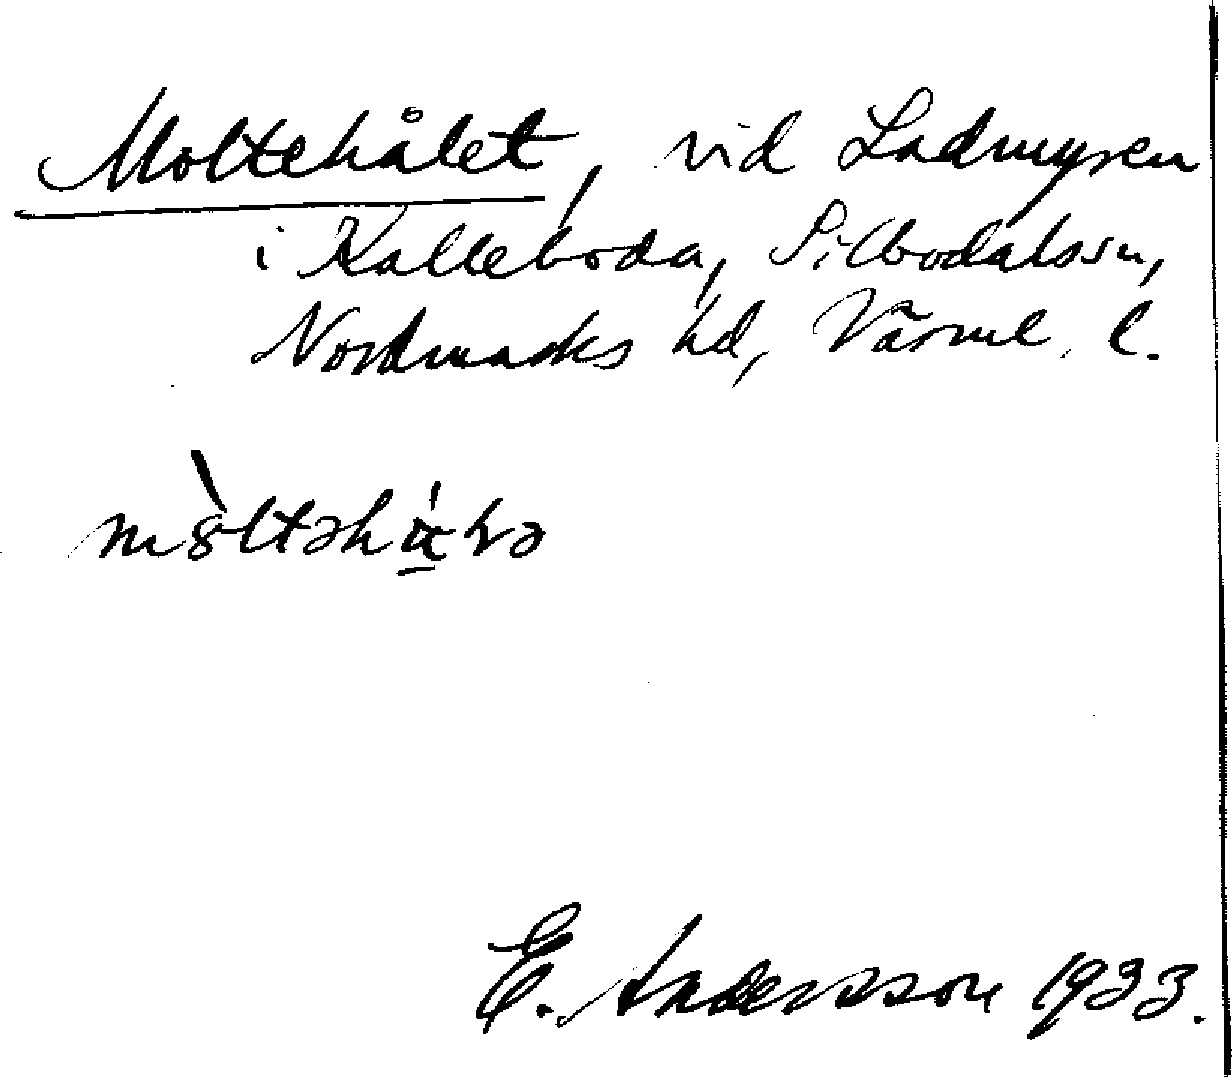 Moltehålet, vid Ladmyren
i Kalleboda, Silbodals sn,
Nordmarks hd, Värml. l.
E. Andersson 1933.